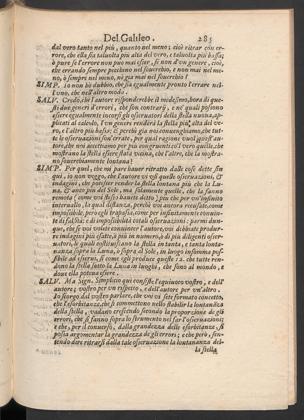 Del Galileo. 285
dal vero tanto nel più, quanto nel meno; cioè ritrar con er-
rore, che ella sia talvolta più alta del vero, e talvolta più bassa;
ò pure se l'errore non può mai esser, se non d'un genere, cioè,
che errando sempre pecchino nel soverchio, e non mai nel me-
no, ò sempre nel meno, nè gia mai nel soverchio?
SIMP. Io non hò dubbio, che sia egualmente pronto l'errare nel-
l'uno, che nell'altro modo.
SALV. Credo, che l'autore risponderebbe il medesimo, hora di que-
sti due generi d'errori, che son contrarij, e ne' quali possono
essere egualmente incorsi gli osservatori della stella nuova, ap-
plicati al calcolo, l'un genere renderà la stella più alta del ve-
ro, e l'altro più bassa; E perchè già noi convenghiamo, che tut-
te le osservazioni son' errate, per qual ragione vuol quest' au-
tore, che noi accettiamo per più congruenti co'l vero quelle, che
mostrano la stella essere stata vicina, che l'altre, che la mostra-
no soverchiamente lontana?
SIMP. Per quel, che mi pare haver ritratto dalle cose dette sin
qui, io non veggo, che l'autore
indagini, che potesser render la stella lontana più che la Lu-
na, & anco più del Sole, ma solamente quelle, che la fanno
remota
intervallo, la qual distanza, perchè voi ancora ricusate, come
impossibile, però egli trapassa, come per infinitamente convinte
di falsità, e di impossibilità cotali osservazioni: parmi dun-
que, che se voi volete convincer l'autore, voi debbiate produr-
re indagini più esatte, ò più in numero, ò di più diligenti osser-
vatori, le quali costituiscano la stella in tanta, e tanta lonta-
nanza sopra la Luna, ò sopra il Sole, in luogo insomma pos-
sibile ad esservi, sì come egli produce queste 12. che tutte ren-
dono la stella sotto la Luna in luoghi, che sono al mondo, e
dove ella poteva essere.
SALV. Ma Sign. Simplicio quì consiste l'equivoco vostro, e dell'
autore; vostro per un rispetto, e dell'autore per un'altro.
Io scorgo dal vostro parlare, che voi vi sete formato concetto,
che l'esorbitanze, che si commettono nello stabilir la lontananza
della stella, vadano crescendo secondo la proporzione de gli
errori, che si fanno sopra lo strumento nel far l'osservazioni;
e che, per il converso, dalla grandezza delle esorbitanze, si
possa argomentar la grandezza de gli errori; e che però, sen-
tendo dire ritrarsi dalla tale osservazione la lontananza del-
la stella